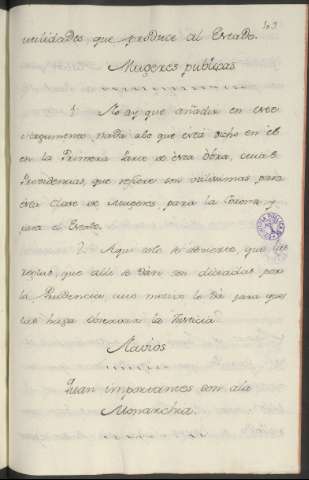 103
utilidades que produce al Estado.
Mugeres publicas
1. No ay que añadir en este
argumento, nada alo que està dicho en el
en la Primera Parte de esta Obra, cuias
Providencias, que refiere son utilissimas para
esta clase de Mugeres, para la Corona, y
para el Estado.
2. Aqui solo se advierte, que las
reglas que alli se dàn son dictadas por
la Prudencia, cuio motivo la dà para que
las haga observar la Justicia
Navios
Quan importantes son ala
Monarchia.